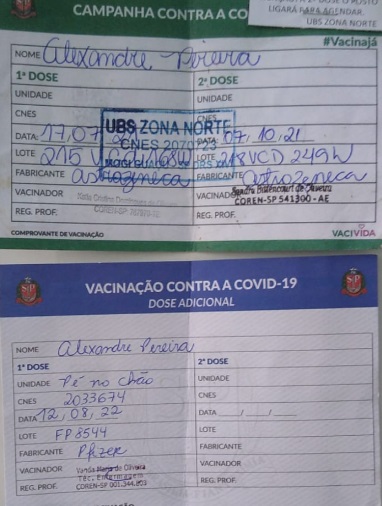 CAMPANHA CONTRA A CO
LIGARÁ PARA AGENDAR.
UBS ZONA NORTE
#Vacinajá
NOME Alexandre Pereira
1ª DOSE 2ª DOSE
UNIDADE UNIDADE
CNES CNES
UBS ZONA NORTE
CNES 2070723
DATA: 17,07 DATA 07,10,21
LOTE 215 LOTE 218VCD 249W
FABRICANTE astrozeneca FABRICANTE Astrozeneca
VACINADOR VACINADOR Sandra Bittencourt de Oliveira
COREN-SP 541300 - AE
REG. PROF. REG. PROF.
COMPROVANTE DE VACINAÇÃO VACIVIDA
VACINAÇÃO CONTRA A COVID-19
DOSE ADICIONAL
NOME Alexandre Pereira
1ª DOSE 2ª DOSE
UNIDADE Pé no chão UNIDADE
CNES 2033674 CNES
DATA 12,08,22 DATA / /
LOTE FP8544 LOTE
FABRICANTE Pfizer FABRICANTE
VACINADOR Vanda Maria de Oliveira VACINADOR
Téc. Enfermagem
REG. PROF. COREN-SP 001.344.803 REG. PROF.